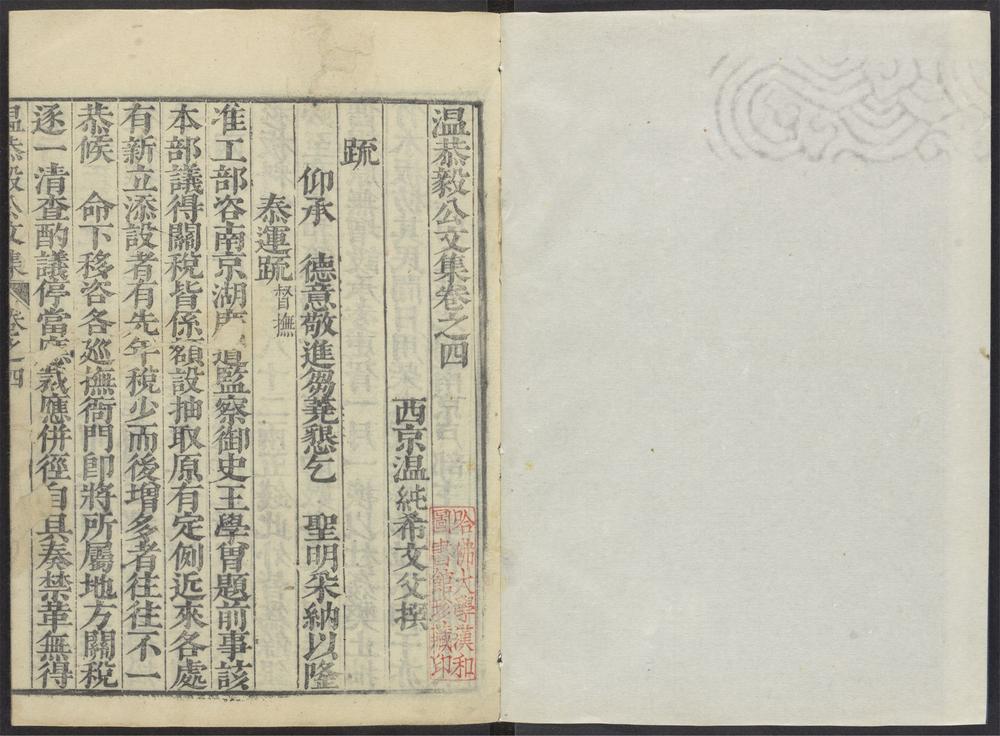 温恭毅公文集卷之四
西京温純希文父撰
哈佛大學漢和
圖書館珍藏印
疏
仰承　德意敬進芻蕘懇乞　聖明采納以隆
泰運疏督撫
准工部咨南京湖廣道監察御史王學曾題前事該
本部議得關稅皆係額設抽取原有定例近來各處
有新立添設者有先年稅少而後增多者往往不一
恭候　命下移咨各廵撫衙門卽將所屬地方關稅
逐一清查酌議停當應裁應併徑自具奏禁革無得
温恭毅公文集　卷之四